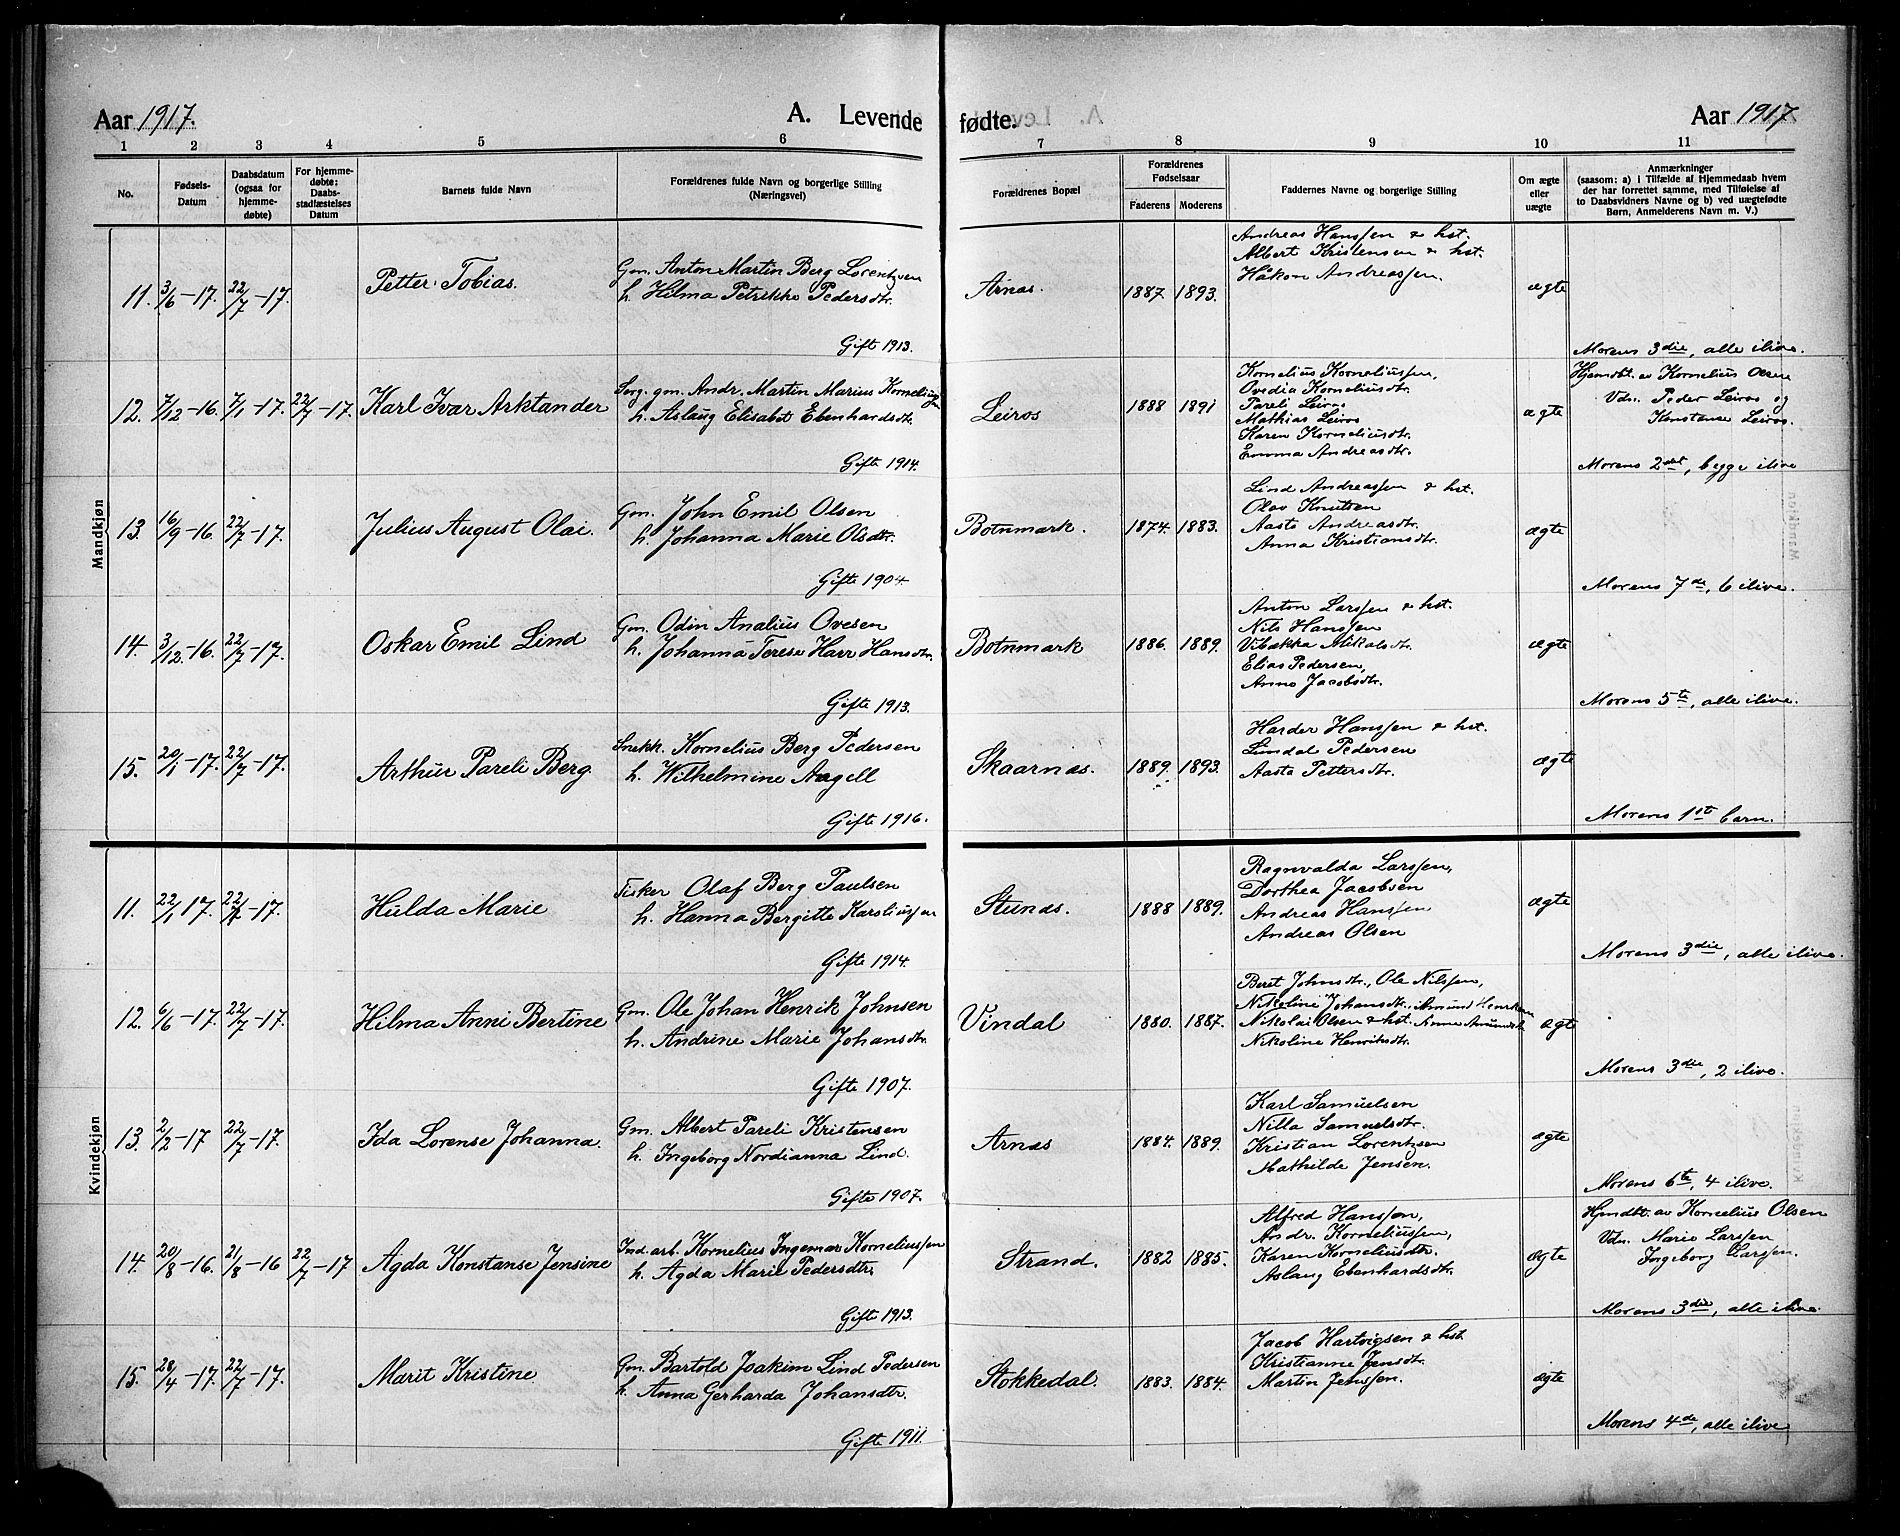 Aar 1917.
A. Levende fødte.
Aar 1917
1 2 3 4 5 6 7 8 9 10 11
No.
Fødsels-
Datum
Daabsdatum
(ogsaa for
hjemme-
døbte)
For hjemme-
døbte:
Daabs-
stadfæstelses
Datum
Barnets fulde Navn
Forældrenes fulde Navn og borgerlige Stilling
(Næringsvei)
Forældrenes Bopæl
Forældrenes
Fødselsaar
Faderens Moderens
Faddernes Navne og borgerlige Stilling
Om ægte
eller
uægte
Anmærkninger
(saasom: a) i Tilfælde af Hjemmedaab hvem
der har forrettet samme, med Tilføielse af
to Daabsvidners Navne og b) ved uægtefødte
Børn, Anmelderens Navn m. V.)
Mandkjøn
11. 3/6-17. 22/7-17.
Petter Tobias.
Gm. Anton Martin Berg Lorentzen
h. Hilma Petrikke Pedersdtr.
Gift 1913.
Arnas.
1887 1893.
Andreas Hanssen & hst.
Albert Kristensen & hst.
Håkon Andreassen.
ægte
Morens 3die, alle ilive.
12. 7/12-16. 7/1-17. 22/7-17.
Karl Ivar Arktander
Sørg. gm. Andr. Martin Marius Korneliussen
h. Aslaug Elisabet Ebenhardsdtr.
Gift 1914.
Leiros
1888 1891
Kornelius Korneliussen,
Ovedia Korneliusdtr.
Pareli Leiros
Mathias Leiros
Karen Korneliusdtr.
Emma Andreasdtr.
ægte
Hjemdbt. av Kornelius Olsen
Vdn. Peder Leiros og
Konstanse Leiros.
Morens 2det, begge ilive
13. 16/9-16. 22/7-17.
Julius August Olai.
Gm. John Emil Olsen
h. Johanna Marie Olsdtr.
Gifte 1904.
Botnmark.
1874. 1883.
Lind Andreassen & hst.
Olav Knutsen
Aasta Andreasdtr.
Anna Kristiansdtr.
ægte
Morens 7de, 6 ilive.
14. 3/12-16. 22/7-17.
Oskar Emil Lind
Gm. Odin Analius Ovesen
h. Johanna Terese Harr Hansdtr.
Gifte 1913.
Botnmark
1886. 1889.
Anton Larssen & hst.
Nils Hanssen
Vibekka Nikolsdtr.
Elias Pedersen,
Anne Jacobsdtr.
ægte
Morens 5te, alle ilive.
15. 20/1-17. 22/7-17.
Arthur Pareli Berg.
Snekk. Kornelius Berg Pedersen
h. Wilhelmine Angell
Gifte 1916.
Skaarnes.
1889. 1893.
Harder Hanssen & hst.
Lindal Pedersen
Aasta Pettersdtr.
ægte
Morens 1ste barn.
Kvindekjøn
11. 22/1 17. 22/7-17.
Hulda Marie
Fisker Olaf Berg Paulsen
h. Hanna Bergitte Karoliussen
Gifte 1914.
Stunas.
1888 1889.
Ragnvalda Larssen,
Dorthea Jacobsen
Andreas Hanssen
Andreas Olsen
ægte
Morens 3die, alle ilive.
12. 6/6-17. 22/7-17.
Hilma Anni Bertine
Gm. Ole Johan Henrik Johnsen
h. Andrine Marie Johansdtr.
Gifte 1907.
Vindal
1880. 1887.
Beret Johnsdtr., Ole Nilssen,
Nikoline Johansdtr., Amund Henriksen
Nikolai Olsen & hst. Anne Amundsdtr.
Nikoline Henriksdtr.
ægte
Morens 3die, 2 ilive.
13. 2/2-17 22/7-17.
Ida Lorense Johanna.
Gm. Albert Pareli Kristensen
h. Ingeborg Nordianna Lind.
Gifte 1907.
Arnas
1884. 1889.
Karl Samuelsen
Nilla Samuelsdtr.
Kristian Lorentzsen
Mathilde Jensen.
ægte
Morens 6te, 4 ilive.
14. 20/8-16. 21/8-16 22/7-17
Agda Konstanse Jensine
Ind. arb. Kornelius Ingemar Korneliussen
h. Agda Marie Pedersdtr.
Gifte 1913.
Strand.
1882 1885.
Alfred Hanssen,
Andr. Korneliussen,
Karen Korneliusdtr.
Aslaug Ebenhardsdtr.
ægte
Hjmdbt. av Kornelius Olsen
Vdn. Marie Larssen
Ingeborg Larssen.
Morens 3die, alle ilive.
15. 28/4-17. 22/7-17.
Marit Kristine
Gm. Bartold Joakim Lind Pedersen
h. Anna Gerharda Johansdtr.
Gifte 1911.
Stokkedal.
1883. 1884.
Jacob Hartvigsen & hst.
Kristianne Jensdtr.
Martin Jenssen.
ægte
Morens 4de, alle ilive